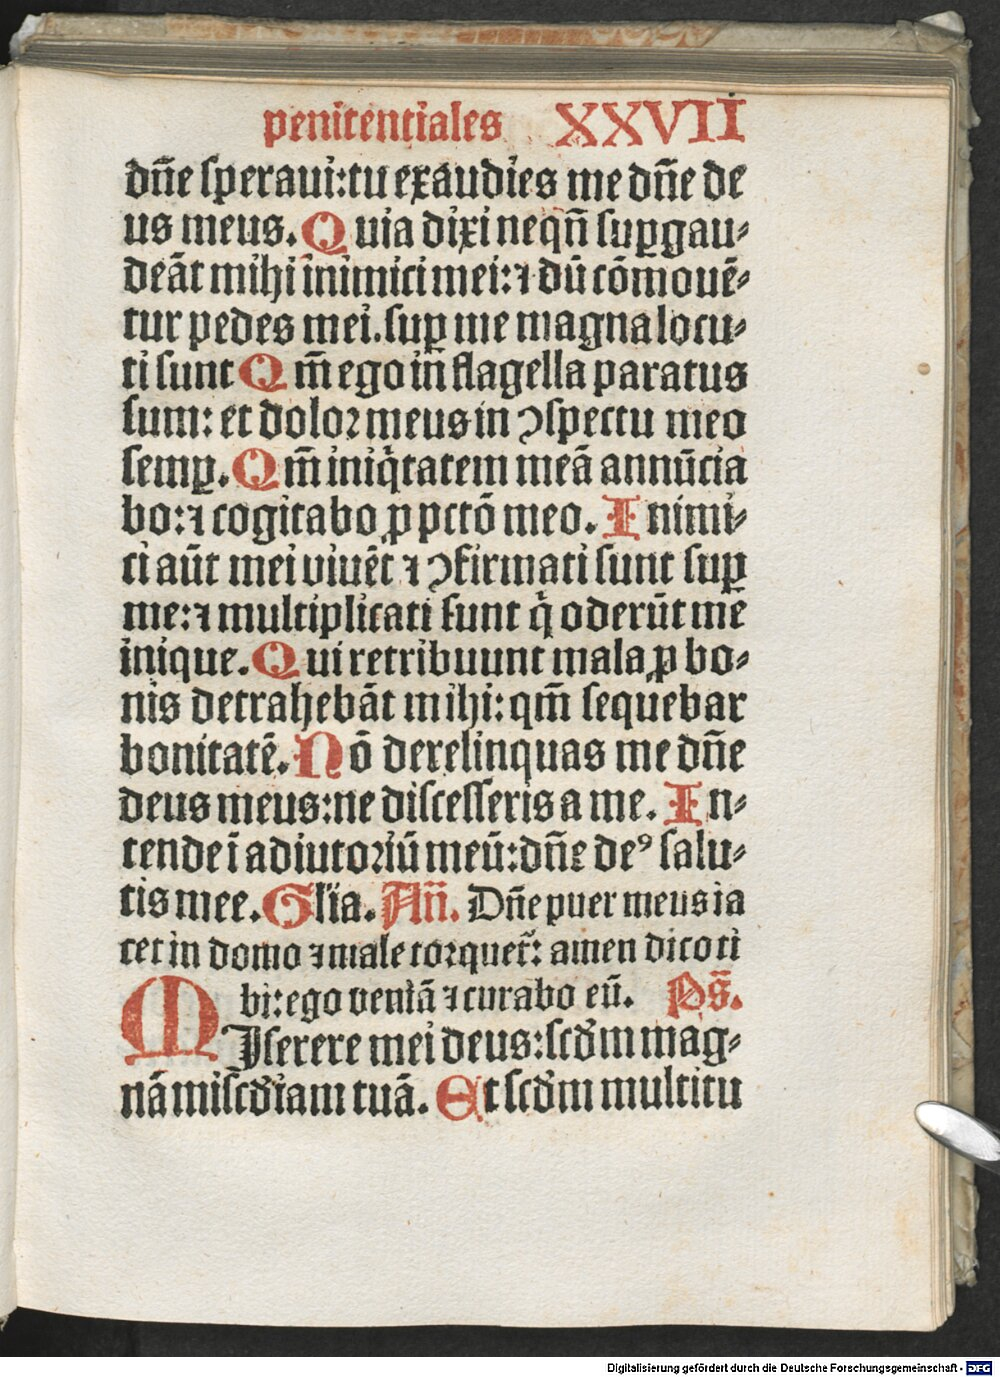 penitentiales XXVII
dn̄e speraui:tu exaudies me dn̄e de
us meus. Quia dixi neqn̄ suꝑgau⸗
deāt mihi inimici mei:⁊ dū cōmouē⸗
tur pedes mei.suꝑ me magna locu⸗
ti sunt Qm̄ ego in̄ flagella paratus
sum: et dolor meus in ↄspectu meo
semꝑ. Qm̄ iniq̇tatem meā annūcia
bo:⁊ cogitabo ꝓ pctō meo. Inimi⸗
ci aūt mei viuēt ⁊ ↄfirmati sunt suꝑ
me:⁊ multiplicati sunt q̇ oderūt me
inique. Qui retribuunt mala ꝓ bo⸗
nis detrahebāt mihi: qm̄ sequebar
bonitatē. Nō derelinquas me dn̄e
deus meus:ne discesseris a me. In⸗
tende ī adiutoriū meū:dn̄e deꝰ salu⸗
tis mee. Glīa. An̄. Dn̄e puer meus ia
cet in domo ⁊ male torquet̄: amen dico ti
bi:ego veniā ⁊ curabo eū. Ps̄.
MIserere mei deus:scd̄m mag⸗
nā misc̄diam tuā. Et scd̄m multitu
Digitalisierung gefördert durch die Deutsche Forschungsgemeinschaft - DFG